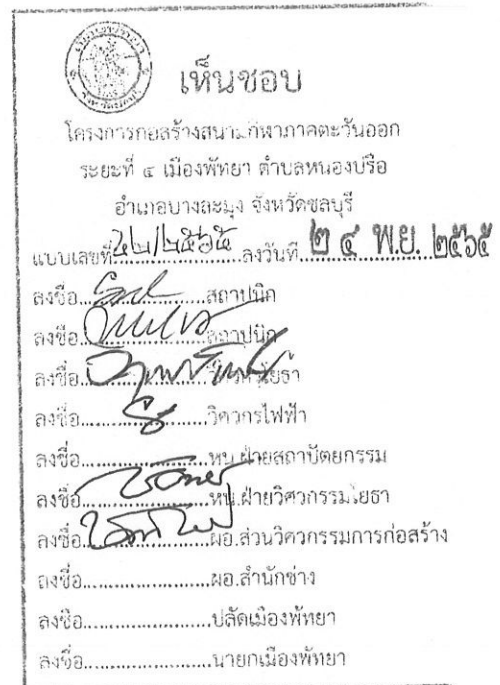 เห็นชอบ
โครงการก่อสร้างสนามกีฬาภาคตะวันออก
ระยะที่ ๔ เมืองพัทยา ตำบลหนองปรือ
อำเภอบางละมุง จังหวัดชลบุรี
แบบเลขที่ ๔๒/๒๕๖๕ ลงวันที่ ๒ ๔ พ.ย. ๒๕๖๕
ลงชื่อ......................สถาปนิก
ลงชื่อ......................สถาปนิก
ลงชื่อ......................วิศวกรโยธา
ลงชื่อ......................วิศวกรไฟฟ้า
ลงชื่อ......................หน.ฝ่ายสถาปัตยกรรม
ลงชื่อ......................หน.ฝ่ายวิศวกรรมโยธา
ลงชื่อ......................ผอ.ส่วนวิศวกรรมการก่อสร้าง
ลงชื่อ......................ผอ.สำนักช่าง
ลงชื่อ......................ปลัดเมืองพัทยา
ลงชื่อ......................นายกเมืองพัทยา